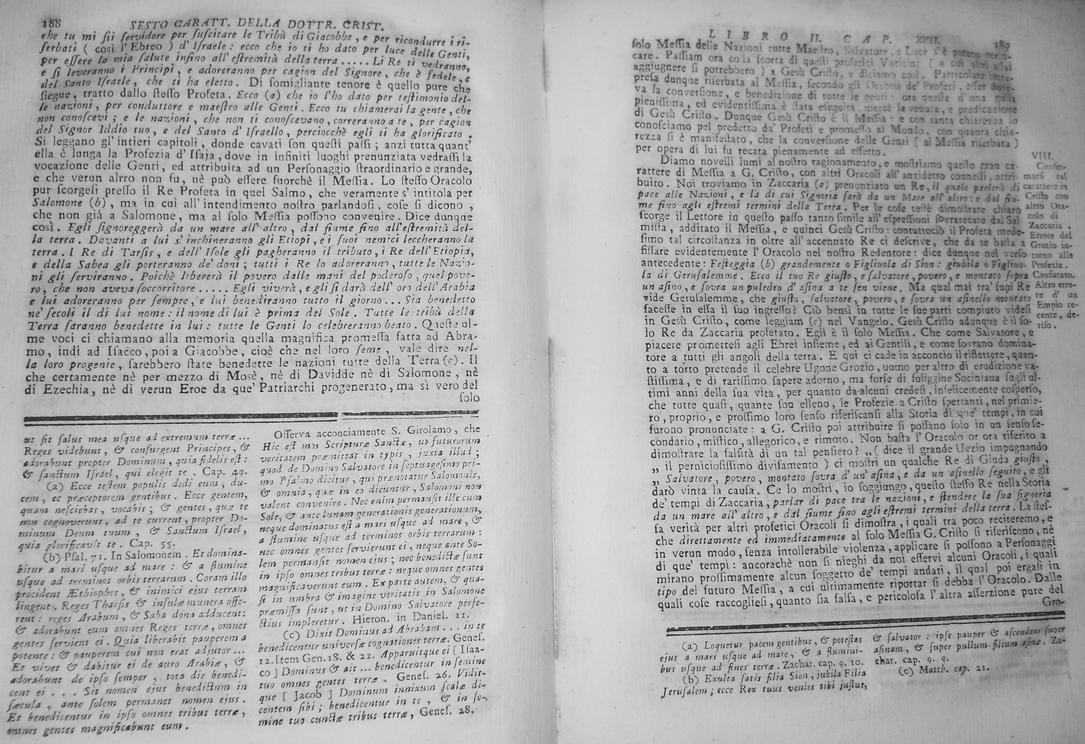 188 SESTO CARATT. DELLA DOTTR. CRIST.
che tu mi sii servidore per suscitare le Tribù di Giacobbe, e per ricondurre i ri-
serbati ( così l'Ebreo ) d'Israele: ecco che io ti ho dato per luce delle Genti,
per essere la mia salute infino all'estremità della terra ..... Li Re ti vedranno,
e si leveranno i Principi, e adoreranno per cagion del Signore, che è fedele, e
del Santo Israele, che ti ha eletto. Di somigliante tenore è quello pure che
siegue, tratto dallo stesso Profeta. Ecco (a) che io l'ho dato per testimonio del-
le nazioni, per conduttore e maestro alle Genti. Ecco tu chiamerai la gente, che
non conoscevi; e le nazioni, che non ti conoscevano, correranno a te, per cagion
del Signor Iddio tuo, e del Santo d'Israello, perciocchè egli ti ha glorificato.
Si leggano gl'intieri capitoli, donde cavati son questi passi; anzi tutta quant'
ella è lunga la Profezia d'Isaja, dove in infiniti luoghi prenunziata vedrassi la
vocazione delle Genti, ed attribuita ad un Personaggio straordinario e grande,
e che verun altro non fu, nè può essere fuorchè il Messia. Lo stesso Oracolo
pur scorgesi presso il Re Profeta in quel Salmo, che veramente s'intitola per
Salomone (b), ma in cui all'intendimento nostro parlandosi, cose si dicono,
che non già a Salomone, ma al solo Messia possono convenire. Dice dunque
così. Egli signoreggerà da un mare all'altro, dal fiume sino all'estremità del-
la terra. Davanti a lui s'inchineranno gli Etiopi, e i suoi nemici leccheranno la
terra. I Re di Tarsis, e dell'Isole gli pagheranno il tributo, i Re dell'Etiopia,
e della Sabea gli porteranno de' doni; tutti i Re lo adoreranno, tutte le Nazio-
ni gli serviranno. Poichè libererà il povero dalle mani del poderoso, quel pove-
ro, che non aveva soccorritore ..... Egli viverà, e gli si darà dell'oro dell'Arabia
e lui adoreranno per sempre, e lui benediranno tutto il giorno ... Sia benedetto
ne' secoli il di lui nome: il nome di lui è prima del Sole. Tutte le tribù della
Terra saranno benedette in lui: tutte le Genti lo celebreranno beato. Queste ul-
me voci ci chiamano alla memoria quella magnifica promessa fatta ad Abra-
mo, indi ad Isacco, poi a Giacobbe, cioè che nel loro seme, vale dire nel-
la loro progenie, sarebbero state benedette le nazioni tutte della Terra (c). Il
che certamente nè per mezzo di Mosè, nè di Davidde nè di Salomone, nè
di Ezechia, nè di verun Eroe da que' Patriarchi progenerato, ma sì vero del
solo
ut sit salus mea usque ad extremum terræ ...
Reges videbunt, & consurgent Principes, &
adorabunt propter Dominum, quia fidelis est:
& sanctum Israel, qui elegit te. Cap. 49.
(a) Ecce testem populis dedi eum, du-
cem, ac præceptorem gentibus. Ecce gentem,
quam nesciebas, vocabis; & gentes, quæ te
non cognoverunt, ad te current, propter Do-
minum Deum tuum, & Sanctum Israel,
quia glorificavit te. Cap. 55.
(b) Psal. 71. In Salomonem. Et domina-
bitur a mari usque ad mare: & a flumine
usque ad terminos orbis terrarum. Coram illo
procident Æthiophes, & inimici ejus terram
lingent. Reges Tharsis & insulæ munera offe-
rent: reges Arabum, & Saba dona adducent:
& adorabunt eum omnes Reges terræ, omnes
gentes servient ei. Quia liberabit pauperem a
potente: & pauperem cui non erat adjutor...
Et vivet & dabitur ei de auro Arabiæ, &
adorabunt de ipso semper, tota die benedi-
cent ei ... Sit nomen ejus benedictum in
sæcula, ante solem permanet nomen ejus.
Et benedicentur in ipso omnes tribus terræ,
omnes gentes magnificabunt eum.
Osserva acconciamente S. Girolamo, che
Hic est mos Scripturæ Sanctæ, ut futurorum
veritatem præmittat in typis, juxta illud;
quod de Domino Salvatore in septuagesimo pri-
mo Psalmo dicitur, qui prænotatur Salomonis,
& omnia, quæ in eo dicuntur, Salomoni non
valent convenire. Nec enim permansit ille cum
Sole, & ante lunam generationis generationum,
neque dominatus est a mari usque ad mare, &
a flumine usque ad terminos orbis terrarum:
nec omnes gentes servierunt ei, neque ante So-
lem permansit nomen ejus; nec benedictæ sunt
in ipso omnes tribus terræ: neque omnes gentes
magnificaverunt eum. Ex parte autem, & qua-
si in umbra & imagine veritatis in Salomone
præmissa sunt, ut in Domino Salvatore perfe-
ctius implerentur. Hieron. in Daniel. 11.
(c) Dixit Dominus ad Abraham ... in te
benedicentur universæ cognationes terræ. Genes.
12. Item Gen. 18. & 22. Apparuitque ei [ Isaa-
co ] Dominus & ait ... benedicentur in semine
tuo omnes gentes terræ. Genes. 26. Vidit-
que [ Jacob ] Dominum innixum scalæ di-
centem sibi; benedicentur in te, & in se-
mine tuo cunctæ tribus terræ, Genes. 28.
LIBRO II. CAP. XVII. 189
solo Messia delle Nazioni tutte Maestro, Salvatore, e Luce s'è potuto
care. Passiam ora colla scorta di questi profetici Vaticini ( a cui altri
aggiugnere si potrebbero ) a Gesù Cristo, e diciamo così.
presa dunque riserbata al Messia, secondo gli Oracoli de' Profeti, esser
va la conversione, e benedizione di tutte le genti: ora questa d'una
pienissima, ed evidentissima è stata eseguita mercè la venuta, e predicazione
di Gesù Cristo. Dunque Gesù Cristo è il Messia: e con tanta chiarezza lo
conosciamo pel predetto da' Profeti e promesso al Mondo, con quanta chia-
rezza si è manifestato, che la conversione delle Genti ( al Messia riserbata )
per opera di lui fu recata pienamente ad effetto.
Diamo novelli lumi al nostro ragionamento, e mostriamo questo gran ca-
rattere di Messia a G. Cristo, con altri Oracoli all'antidetto connessi, attri-
buito. Noi troviamo in Zaccaria (a) prenunziato un Re, il quale parlerà di
pace alle Nazioni, e la di cui Signoria sarà da un Mare all'altro: e dal fiu-
me fino agli estremi termini della Terra. Per le cose testè dimostrate chiaro
scorge il Lettore in questo passo tanto simile all'espressioni sovrarecate dal Sal
mista, additato il Messia, e quinci Gesù Cristo: contuttociò il Profeta mede-
simo tal circostanza in oltre all'accennato Re ci descrive, che da se basta a
fissare evidentemente l'Oracolo nel nostro Redentore: dice dunque nel verso
antecedente: Festeggia (b) grandemente o Figliuola di Sion: giubila o Figliuo-
la di Gerusalemme. Ecco il tuo Re giusto, e salvatore, povero, e montato sopra
un asino, e sovra un puledro d'asina a te sen viene. Ma qual mai tra' suoi Re
vide Gerusalemme, che giusto, salvatore, povero, e sovra un asinello montato
facesse in essa il suo ingresso? Ciò bensì in tutte le sue parti compiuto videsi
in Gesù Cristo, come leggiam (c) nel Vangelo. Gesù Cristo adunque è il so-
lo Re da Zaccaria profetato. Egli è il solo Messia, Che come Salvatore, e
piacere promettesi agli Ebrei insieme, ed ai Gentili, e come sovrano domina-
tore a tutti gli angoli della terra. E qui ci cade in acconcio il riflettere, quan-
to a torto pretende il celebre Ugone Grozio, uomo per altro di erudizione va-
stissima, e di rarissimo sapere adorno, ma forse di fuliggine Sociniana sugli ul-
timi anni della sua vita, per quanto da alcuni credesi, infelicemente cosperso,
che tutte quasi, quante son elleno, le Profezie a Cristo spettanti, nel primie-
ro, proprio, e prossimo loro senso riferiscansi alla Storia di que' tempi, in cui
furono pronunciate: a G. Cristo poi attribuire si possano solo in un senso se-
condario, mistico, allegorico, e rimoto. Non basta l'Oracolo or ora riferito a
dimostrare la falsità di un tal pensiero? „ ( dice il grande Uezio impugnando
„ il perniciosissimo divisamento ) ci mostri un qualche Re di Giuda giusto,
„ Salvatore, povero, montato sovra d'un' asina, e da un asinello seguito, e gli
darò vinta la causa. Ce lo mostri, io soggiungo, questo stesso Re nella Storia
de' tempi di Zaccaria, parlar di pace tra le nazioni, e stendere la sua signoria
da un mare all'altro, e dal fiume fino agli estremi termini della terra. La stes-
sa verità per altri profetici Oracoli si dimostra, i quali tra poco reciteremo, e
che direttamente ed immediatamente al solo Messia G. Cristo si riferiscono, nè
in verun modo, senza intollerabile violenza, applicare si possono a Personaggi
di que' tempi: ancorachè non si nieghi da noi esservi alcuni Oracoli, i quali
mirano prossimamente alcun soggetto de' tempi andati, il qual poi ergasi in
tipo del futuro Messia, a cui ultimamente riportar si debba l'Oracolo. Dalle
quali cose raccogliesi, quanto sia falsa, e pericolosa l'altra asserzione pure del
Gro-
VIII.
Confer-
marsi tal
carattere in
Cristo con
altri Ora-
colo di
Zaccaria.
Errore del
Grozio in-
torno alle
Profezie.
Confutato.
Altro erro-
re d' un
Empio re-
cente, de-
riso.
(a) Loquetur pacem gentibus, & potestas
ejus a mari usque ad mare, & a flumini-
bus usque ad fines terræ. Zachar. cap. 9. 10.
(b) Exulta satis filia Sion, jubila Filia
Jerusalem; ecce Rex tuus veniet tibi justus,
& salvator: ipse pauper & ascendens super
asinam, & super pullum filium asinæ. Za-
char. cap. 9. 9.
(c) Matth. cap. 21.